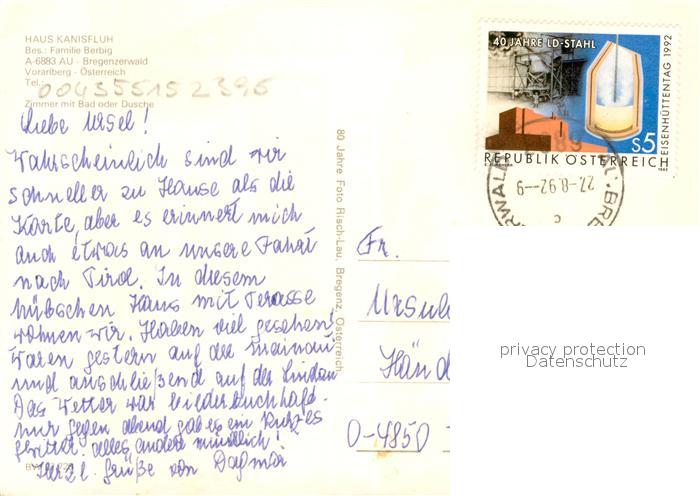 HAUS KANISFLUH
Bes.: Familie Berbig
A-6883 AU - Bregenzerwald
Vorarlberg - Österreich
Tel.: 004355152395
Zimmer mit Bad oder Dusche
Liebe Ursel!
Wahrscheinlich sind wir
schneller zu Hause als die
Karte, aber es erinnert mich
auch etwas an unsere Fahrt
nach Tirol. In diesem
hübschen Haus mit Terasse
wohnen wir. Haben viel gesehen!
Waren gestern auf der Mainau
und anschließend auf der Lindau
Das Wetter war bilderbuchhaft
nur gegen abend gab es ein kurzes
Gewitter. alles andere mündlich!
Herzl. Grüße von Dagmar
80 Jahre Foto Risch-Lau, Bregenz, Österreich
40 JAHRE LD-STAHL
EISENHÜTTENTAG 1992
S5
REPUBLIK ÖSTERREICH
27.-8.92--9
c
Fr.
Ursul
Händ
D-4850
privacy protection
Datenschutz